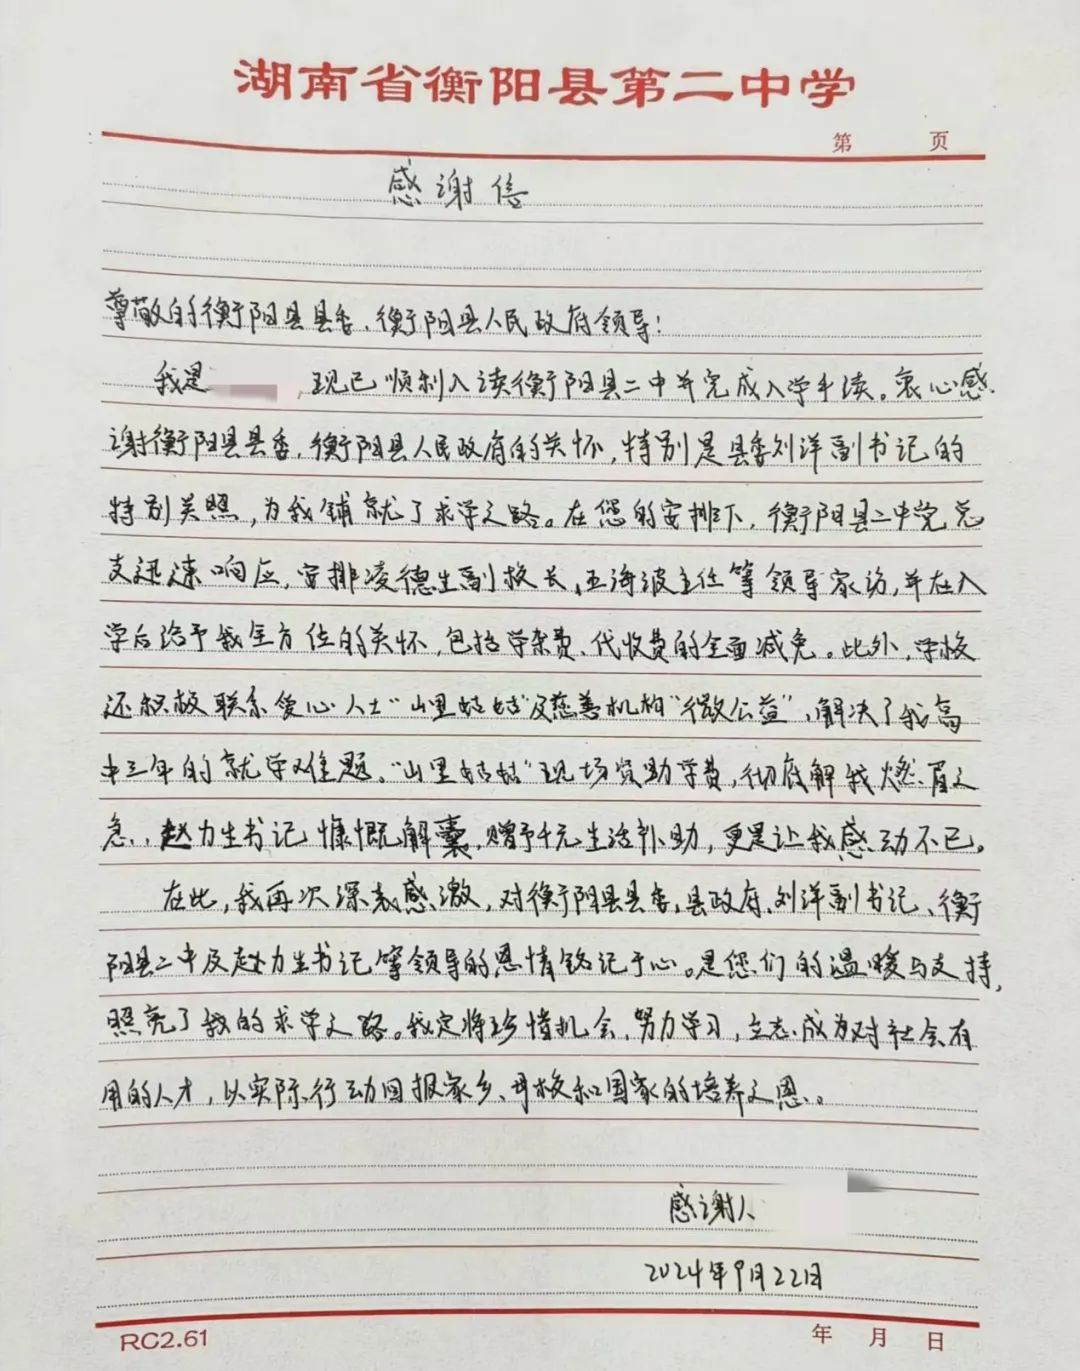 湖南省衡阳县第二中学
第 页
感谢信
尊敬的衡阳县县委、衡阳县人民政府领导！
我是 ，现已顺利入读衡阳县二中并完成入学手续。衷心感
谢衡阳县县委，衡阳县人民政府的关怀，特别是县委刘洋副书记的
特别关照，为我铺就了求学之路。在您的安排下，衡阳县二中党总
支迅速响应，安排凌德生副校长，王海波主任等领导家访，并在入
学后给予我全方位的关怀，包括学杂费、代收费的全面减免。此外，学校
还积极联系爱心人士“山里姑姑”及慈善机构“微公益”，解决了我高
中三年的就学难题。“山里姑姑”现场资助学费，彻底解我燃眉之
急，赵力生书记慷慨解囊，赠予千元生活补助，更是让我感动不已。
在此，我再次深表感激，对衡阳县县委，县政府、刘洋副书记、衡
阳县二中及赵力生书记等领导的恩情铭记于心。是您们的温暖与支持，
照亮了我的求学之路。我定将珍惜机会，努力学习，立志成为对社会有
用的人才，以实际行动回报家乡、母校和国家的培养之恩。
感谢人
2024年9月22日
RC2.61
年 月 日